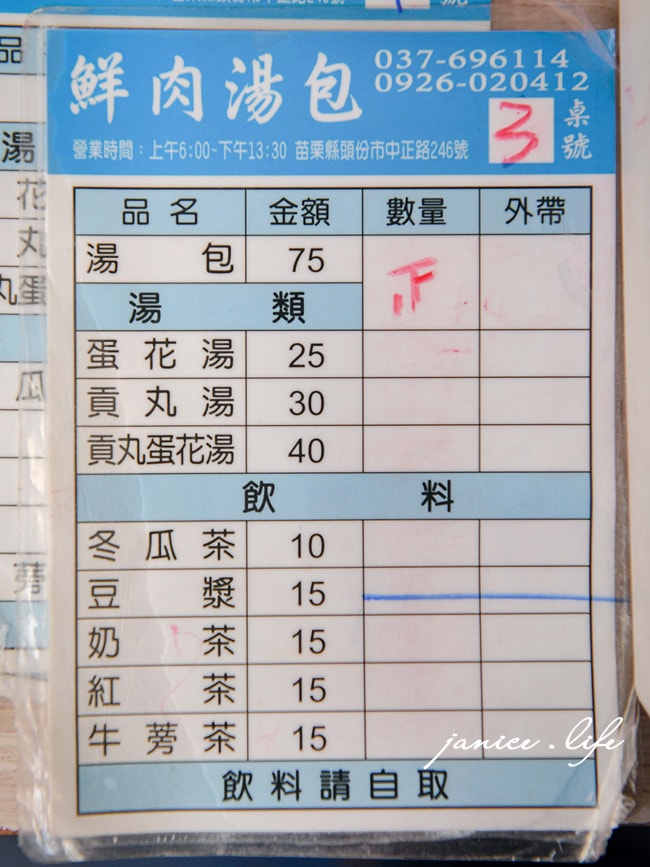 鮮肉湯包
037-696114
0926-020412
營業時間：上午6:00~下午13:30 苗栗縣頭份市中正路246號
3
桌號
品名 金額 數量 外帶
湯包 75
湯類
蛋花湯 25
貢丸湯 30
貢丸蛋花湯 40
飲料
冬瓜茶 10
豆漿 15
奶茶 15
紅茶 15
牛蒡茶 15
janice.life
飲料請自取